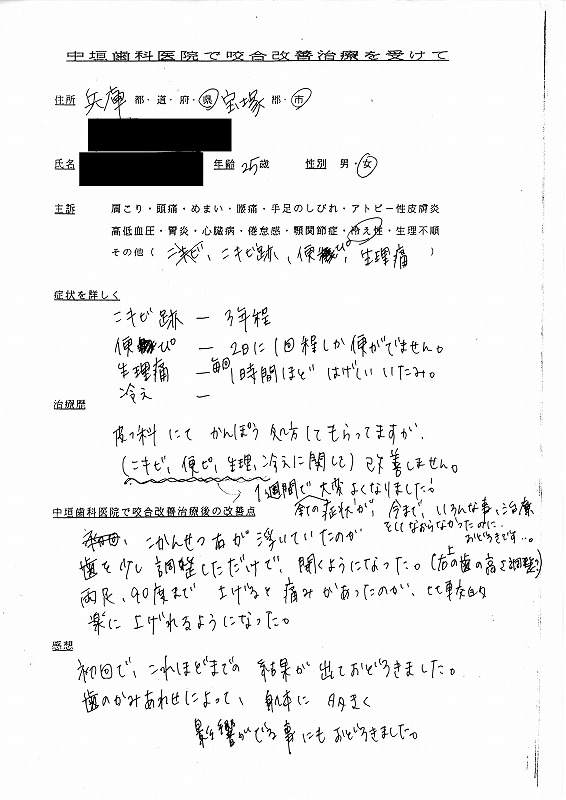 中垣歯科医院で咬合改善治療を受けて
住所 兵庫 都・道・府・県 宝塚 郡・市
氏名 年齢 25歳 性別 男・女
主訴 肩こり・頭痛・めまい・腰痛・手足のしびれ・アトピー性皮膚炎
高低血圧・胃炎・心臓病・倦怠感・顎関節症・冷え性・生理不順
その他（ ニキビ、ニキビ跡、便ぴ、生理痛 ）
症状を詳しく
ニキビ跡 ー 3年程
便ぴ ー 2日に1回程しか便がでません。
生理痛 ー 毎回1時間ほど はげしいいたみ。
冷え ー
治療歴
皮フ科にて かんぽう処方してもらってますが、
（ニキビ、便ピ、生理、冷えに関して）改善しません。
1週間で大変よくなりました！
全ての症状が、今まで、いろんな事、治療
中垣歯科医院で咬合改善治療後の改善点
をしいなおらなかったのに、
おどろきです…。
初回、こかんせつ右が浮いていたのが
歯を少し調整しただけで、開くようになった。（右上の歯の高さ調整）
両足、90度まで 上げると痛みがあったのが、比較的
楽に上げれるようになった。
感想
初回で、これほどまでの 結果が出ておどろきました。
歯のかみあわせによって、身体に 多きく
影響がでる事にもおどろきました。